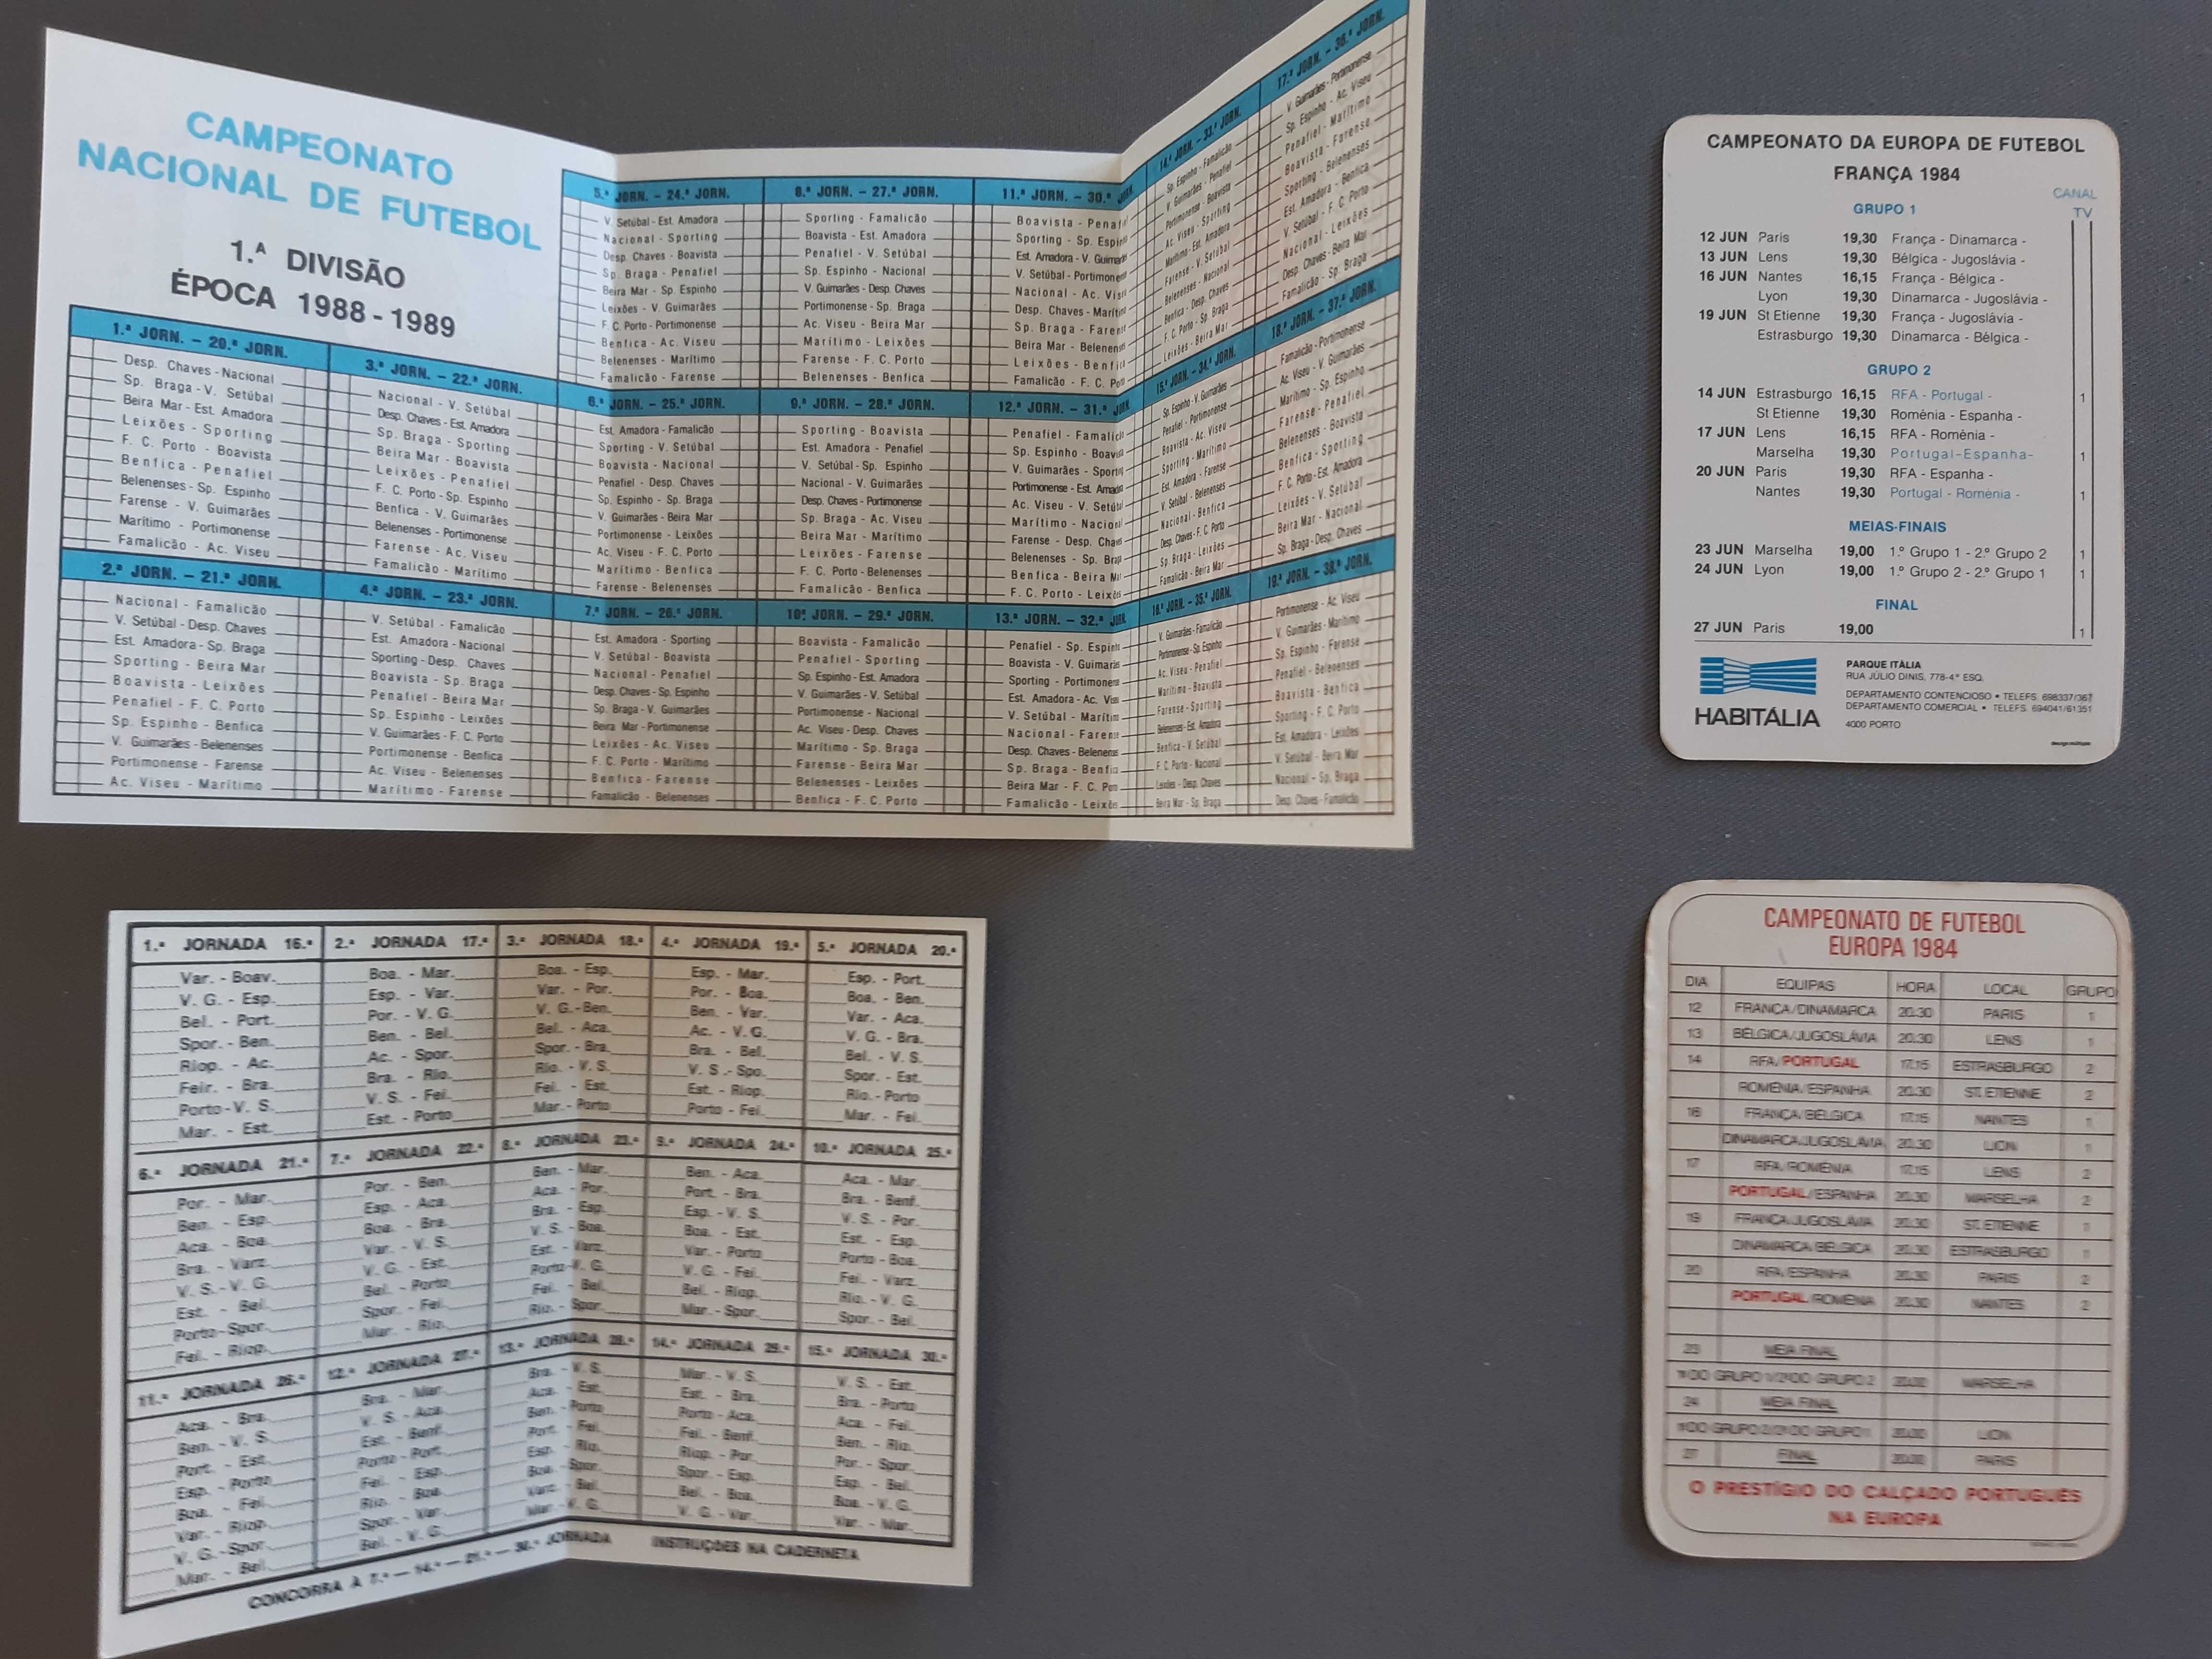 CAMPEONATO
NACIONAL DE FUTEBOL
1.ª DIVISÃO
ÉPOCA 1988 - 1989
1.ª JORN. – 20.ª JORN.
Desp. Chaves - Nacional
Sp. Braga - V. Setúbal
Beira Mar - Est. Amadora
Leixões - Sporting
F. C. Porto - Boavista
Benfica - Penafiel
Belenenses - Sp. Espinho
Farense - V. Guimarães
Marítimo - Portimonense
Famalicão - Ac. Viseu
2.ª JORN. – 21.ª JORN.
Nacional - Famalicão
V. Setúbal - Desp. Chaves
Est. Amadora - Sp. Braga
Sporting - Beira Mar
Boavista - Leixões
Penafiel - F. C. Porto
Sp. Espinho - Benfica
V. Guimarães - Belenenses
Portimonense - Farense
Ac. Viseu - Marítimo
3.ª JORN. – 22.ª JORN.
Nacional - V. Setúbal
Desp. Chaves - Est. Amadora
Sp. Braga - Sporting
Beira Mar - Boavista
Leixões - Penafiel
F. C. Porto - Sp. Espinho
Benfica - V. Guimarães
Belenenses - Portimonense
Farense - Ac. Viseu
Famalicão - Marítimo
4.ª JORN. – 23.ª JORN.
V. Setúbal - Famalicão
Est. Amadora - Nacional
Sporting - Desp. Chaves
Boavista - Sp. Braga
Penafiel - Beira Mar
Sp. Espinho - Leixões
V. Guimarães - F. C. Porto
Portimonense - Benfica
Ac. Viseu - Belenenses
Marítimo - Farense
5.ª JORN. – 24.ª JORN.
V. Setúbal - Est. Amadora
Nacional - Sporting
Desp. Chaves - Boavista
Sp. Braga - Penafiel
Beira Mar - Sp. Espinho
Leixões - V. Guimarães
F. C. Porto - Portimonense
Benfica - Ac. Viseu
Belenenses - Marítimo
Famalicão - Farense
6.ª JORN. – 25.ª JORN.
Est. Amadora - Famalicão
Sporting - V. Setúbal
Boavista - Nacional
Penafiel - Desp. Chaves
Sp. Espinho - Sp. Braga
V. Guimarães - Beira Mar
Portimonense - Leixões
Ac. Viseu - F. C. Porto
Marítimo - Benfica
Farense - Belenenses
7.ª JORN. – 26.ª JORN.
Est. Amadora - Sporting
V. Setúbal - Boavista
Nacional - Penafiel
Desp. Chaves - Sp. Espinho
Sp. Braga - V. Guimarães
Beira Mar - Portimonense
Leixões - Ac. Viseu
F. C. Porto - Marítimo
Benfica - Farense
Famalicão - Belenenses
8.ª JORN. – 27.ª JORN.
Sporting - Famalicão
Boavista - Est. Amadora
Penafiel - V. Setúbal
Sp. Espinho - Nacional
V. Guimarães - Desp. Chaves
Portimonense - Sp. Braga
Ac. Viseu - Beira Mar
Marítimo - Leixões
Farense - F. C. Porto
Belenenses - Benfica
9.ª JORN. – 28.ª JORN.
Sporting - Boavista
Est. Amadora - Penafiel
V. Setúbal - Sp. Espinho
Nacional - V. Guimarães
Desp. Chaves - Portimonense
Sp. Braga - Ac. Viseu
Beira Mar - Marítimo
Leixões - Farense
F. C. Porto - Belenenses
Famalicão - Benfica
10.ª JORN. – 29.ª JORN.
Boavista - Famalicão
Penafiel - Sporting
Sp. Espinho - Est. Amadora
V. Guimarães - V. Setúbal
Portimonense - Nacional
Ac. Viseu - Desp. Chaves
Marítimo - Sp. Braga
Farense - Beira Mar
Belenenses - Leixões
Benfica - F. C. Porto
11.ª JORN. – 30.ª JORN.
Boavista - Penafi
Sporting - Sp. Espin
Est. Amadora - V. Guimarã
V. Setúbal - Portimonen
Nacional - Ac. Vis
Desp. Chaves - Marítim
Sp. Braga - Faren
Beira Mar - Belenens
Leixões - Benfi
Famalicão - F. C. Po
12.ª JORN. – 31.ª JORN.
Penafiel - Famalicã
Sp. Espinho - Boavis
V. Guimarães - Sporti
Portimonense - Est. Amado
Ac. Viseu - V. Setúb
Marítimo - Nacion
Farense - Desp. Chav
Belenenses - Sp. Bra
Benfica - Beira M
F. C. Porto - Leixõ
13.ª JORN. – 32.ª JORN.
Penafiel - Sp. Espin
Boavista - V. Guimarã
Sporting - Portimone
Est. Amadora - Ac. Vis
V. Setúbal - Marítim
Nacional - Faren
Desp. Chaves - Belenens
Sp. Braga - Benfi
Beira Mar - F. C. Por
Famalicão - Leixõ
14.ª JORN. – 33.ª JORN.
Sp. Espinho - Famalicão
V. Guimarães - Penafiel
Portimonense - Boavista
Ac. Viseu - Sporting
Marítimo - Est. Amadora
Farense - V. Setúbal
Belenenses - Nacional
Benfica - Desp. Chaves
F. C. Porto - Sp. Braga
Leixões - Beira Mar
15.ª JORN. – 34.ª JORN.
Sp. Espinho - V. Guimarães
Penafiel - Portimonense
Boavista - Ac. Viseu
Sporting - Marítimo
Est. Amadora - Farense
V. Setúbal - Belenenses
Nacional - Benfica
Desp. Chaves - F. C. Porto
Sp. Braga - Leixões
Famalicão - Beira Mar
16.ª JORN. – 35.ª JORN.
V. Guimarães - Famalicão
Portimonense - Sp. Espinho
Ac. Viseu - Penafiel
Marítimo - Boavista
Farense - Sporting
Belenenses - Est. Amadora
Benfica - V. Setúbal
F. C. Porto - Nacional
Leixões - Desp. Chaves
Beira Mar - Sp. Braga
17.ª JORN. – 36.ª JORN.
V. Guimarães - Portimonense
Sp. Espinho - Ac. Viseu
Penafiel - Marítimo
Boavista - Farense
Sporting - Belenenses
Est. Amadora - Benfica
V. Setúbal - F. C. Porto
Nacional - Leixões
Desp. Chaves - Beira Mar
Famalicão - Sp. Braga
18.ª JORN. – 37.ª JORN.
Famalicão - Portimonense
Ac. Viseu - V. Guimarães
Marítimo - Sp. Espinho
Farense - Penafiel
Belenenses - Boavista
Benfica - Sporting
F. C. Porto - Est. Amadora
Leixões - V. Setúbal
Beira Mar - Nacional
Sp. Braga - Desp. Chaves
19.ª JORN. – 38.ª JORN.
Portimonense - Ac. Viseu
V. Guimarães - Marítimo
Sp. Espinho - Farense
Penafiel - Belenenses
Boavista - Benfica
Sporting - F. C. Porto
Est. Amadora - Leixões
V. Setúbal - Beira Mar
Nacional - Sp. Braga
Desp. Chaves - Famalicão
CAMPEONATO DA EUROPA DE FUTEBOL
FRANÇA 1984
CANAL
TV
GRUPO 1
12 JUN Paris 19,30 França - Dinamarca -
13 JUN Lens 19,30 Bélgica - Jugoslávia -
16 JUN Nantes 16,15 França - Bélgica -
Lyon 19,30 Dinamarca - Jugoslávia -
19 JUN St Etienne 19,30 França - Jugoslávia -
Estrasburgo 19,30 Dinamarca - Bélgica -
GRUPO 2
14 JUN Estrasburgo 16,15 RFA - Portugal - 1
St Etienne 19,30 Roménia - Espanha -
17 JUN Lens 16,15 RFA - Roménia -
Marselha 19,30 Portugal-Espanha- 1
20 JUN Paris 19,30 RFA - Espanha -
Nantes 19,30 Portugal - Roménia - 1
MEIAS-FINAIS
23 JUN Marselha 19,00 1.º Grupo 1 - 2.º Grupo 2 1
24 JUN Lyon 19,00 1.º Grupo 2 - 2.º Grupo 1 1
FINAL
27 JUN Paris 19,00 1
HABITÁLIA
PARQUE ITÁLIA
RUA JÚLIO DINIS, 778-4.º ESQ.
DEPARTAMENTO CONTENCIOSO • TELEFS. 698337/367
DEPARTAMENTO COMERCIAL • TELEFS. 694041/61351
4000 PORTO
1.ª JORNADA 16.ª
Var. - Boav.
V. G. - Esp.
Bel. - Port.
Spor. - Ben.
Riop. - Ac.
Feir. - Bra.
Porto - V. S.
Mar. - Est.
2.ª JORNADA 17.ª
Boa. - Mar.
Esp. - Var.
Por. - V. G.
Ben. - Bel.
Ac. - Spor.
Bra. - Rio.
V. S. - Fei.
Est. - Porto
3.ª JORNADA 18.ª
Boa. - Esp.
Var. - Por.
V. G. - Ben.
Bel. - Aca.
Spor. - Bra.
Rio. - V. S.
Fei. - Est.
Mar. - Porto
4.ª JORNADA 19.ª
Esp. - Mar.
Por. - Boa.
Ben. - Var.
Ac. - V. G.
Bra. - Bel.
V. S. - Spo.
Est. - Riop.
Porto - Fei.
5.ª JORNADA 20.ª
Esp. - Port.
Boa. - Ben.
Var. - Aca.
V. G. - Bra.
Bel. - V. S.
Spor. - Est.
Rio. - Porto
Mar. - Fei.
6.ª JORNADA 21.ª
Por. - Mar.
Ben. - Esp.
Aca. - Boa.
Bra. - Varz.
V. S. - V. G.
Est. - Bel.
Porto - Spor.
Fei. - Riop.
7.ª JORNADA 22.ª
Por. - Ben.
Esp. - Aca.
Boa. - Bra.
Var. - V. S.
V. G. - Est.
Bel. - Porto
Spor. - Fei.
Mar. - Rio.
8.ª JORNADA 23.ª
Ben. - Mar.
Aca. - Por.
Bra. - Esp.
V. S. - Boa.
Est. - Varz.
Porto - V. G.
Fei. - Bel.
Rio. - Spor.
9.ª JORNADA 24.ª
Ben. - Aca.
Port. - Bra.
Esp. - V. S.
Boa. - Est.
Var. - Porto
V. G. - Fei.
Bel. - Riop.
Mar. - Spor.
10.ª JORNADA 25.ª
Aca. - Mar.
Bra. - Benf.
V. S. - Por.
Est. - Esp.
Porto - Boa.
Fei. - Varz.
Rio. - V. G.
Spor. - Bel.
11.ª JORNADA 26.ª
Aca. - Bra.
Ben. - V. S.
Port. - Est.
Esp. - Porto
Boa. - Fei.
Var. - Riop.
V. G. - Spor.
Mar. - Bel.
12.ª JORNADA 27.ª
Bra. - Mar.
V. S. - Aca.
Est. - Benf.
Porto - Port.
Fei. - Esp.
Rio. - Boa.
Spor. - Var.
Bel. - V. G.
13.ª JORNADA 28.ª
Bra. - V. S.
Aca. - Est.
Ben. - Porto
Port. - Fei.
Esp. - Rio.
Boa. - Spor.
Varz. - Bel.
Mar. - V. G.
14.ª JORNADA 29.ª
Mar. - V. S.
Est. - Bra.
Porto - Aca.
Fei. - Benf.
Riop. - Por.
Spor. - Esp.
Bel. - Boa.
V. G. - Var.
15.ª JORNADA 30.ª
V. S. - Est.
Bra. - Porto
Aca. - Fei.
Ben. - Rio.
Por. - Spor.
Esp. - Bel.
Boa. - V. G.
Var. - Mar.
CONCORRA À 7.ª — 14.ª — 21.ª — 30.ª JORNADA INSTRUÇÕES NA CADERNETA
CAMPEONATO DE FUTEBOL
EUROPA 1984
DIA EQUIPAS HORA LOCAL GRUPO
12 FRANÇA/DINAMARCA 20.30 PARIS 1
13 BÉLGICA/JUGOSLÁVIA 20.30 LENS 1
14 RFA/PORTUGAL 17.15 ESTRASBURGO 2
ROMÉNIA/ESPANHA 20.30 ST. ETIENNE 2
16 FRANÇA/BÉLGICA 17.15 NANTES 1
DINAMARCA/JUGOSLÁVIA 20.30 LION 1
17 RFA/ROMÉNIA 17.15 LENS 2
PORTUGAL/ESPANHA 20.30 MARSELHA 2
19 FRANÇA/JUGOSLÁVIA 20.30 ST. ETIENNE 1
DINAMARCA/BÉLGICA 20.30 ESTRASBURGO 1
20 RFA/ESPANHA 20.30 PARIS 2
PORTUGAL/ROMÉNIA 20.30 NANTES 2
23 MEIA FINAL
1º DO GRUPO 1/2º DO GRUPO 2 20.00 MARSELHA
24 MEIA FINAL
1º DO GRUPO 2/2º DO GRUPO 1 20.00 LION
27 FINAL 20.00 PARIS
O PRESTÍGIO DO CALÇADO PORTUGUÊS
NA EUROPA